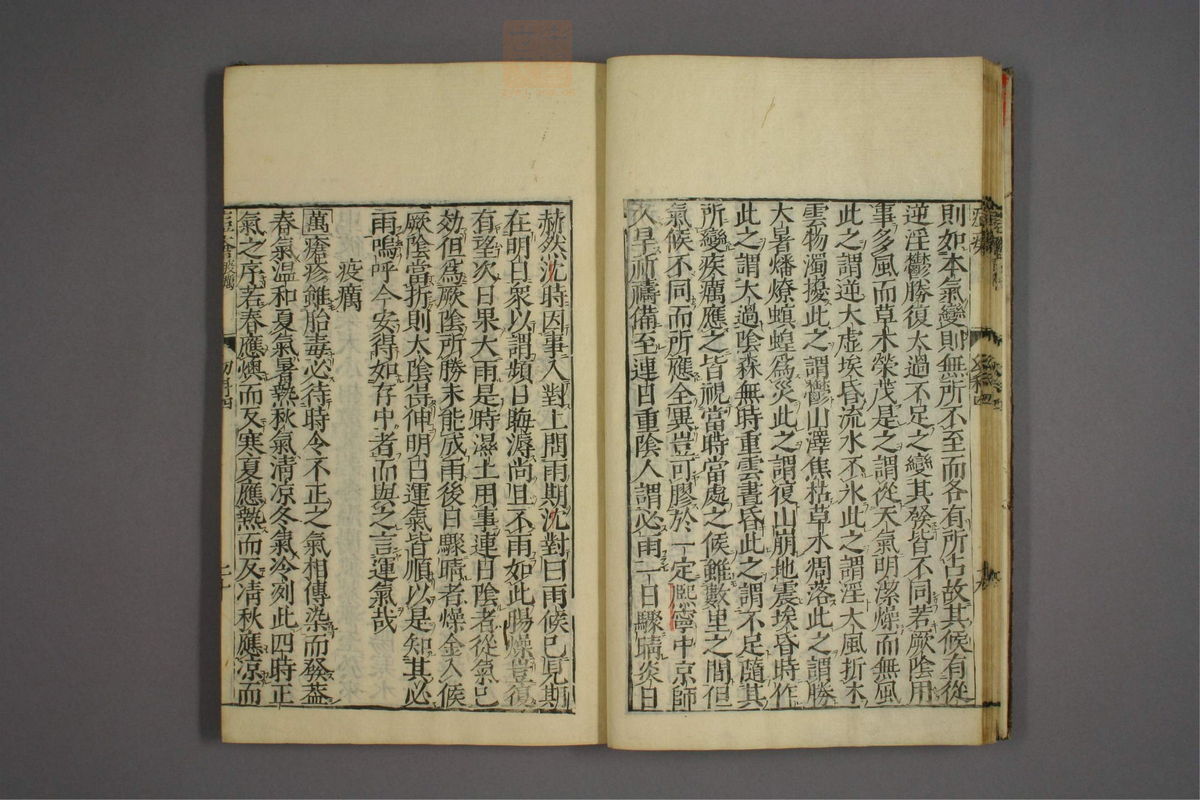 則如本氣變則無所不至而各有所占故其候有從
逆淫鬱勝復太過不足之變其發皆不同若厥陰用
事多風而草木榮茂是之謂從天氣明潔燥而無風
此之謂逆大虛埃昏流水不氷此之謂淫大風折木
雲物濁擾此之謂鬱山澤焦枯草木凋落此之謂勝
大暑燔燎螟蝗爲災此之謂復山崩地震埃昏時作
此之謂大過陰森無時重雲晝昏此之謂不足隨其
所變疾癘應之皆視當時當處之候雖數里之間但
氣候不同而所應全異豈可膠於一定熈寧中京師
久旱祈禱備至連日重陰人謂必雨一日驟晴炎日
赫然沈時因事入對上問雨期沈對曰雨候已見期
在明日衆以謂頻日晦溽尚且不雨如此暘燥豈復
有望次日果大雨是時濕土用事連日陰者從氣已
効但爲厥陰所勝未能成雨後日驟晴者燥金入候
厥陰當折則太陰得伸明日運氣皆順以是知其必
雨嗚呼今安得如存中者而與之言運氣哉
疫癘
萬瘡疹雖胎毒必待時令不正之氣相傳染而發蓋
春氣温和夏氣暑熱秋氣清凉冬氣冷冽此四時正
氣之序若春應煗而反寒夏應熱而反凊秋應凉而